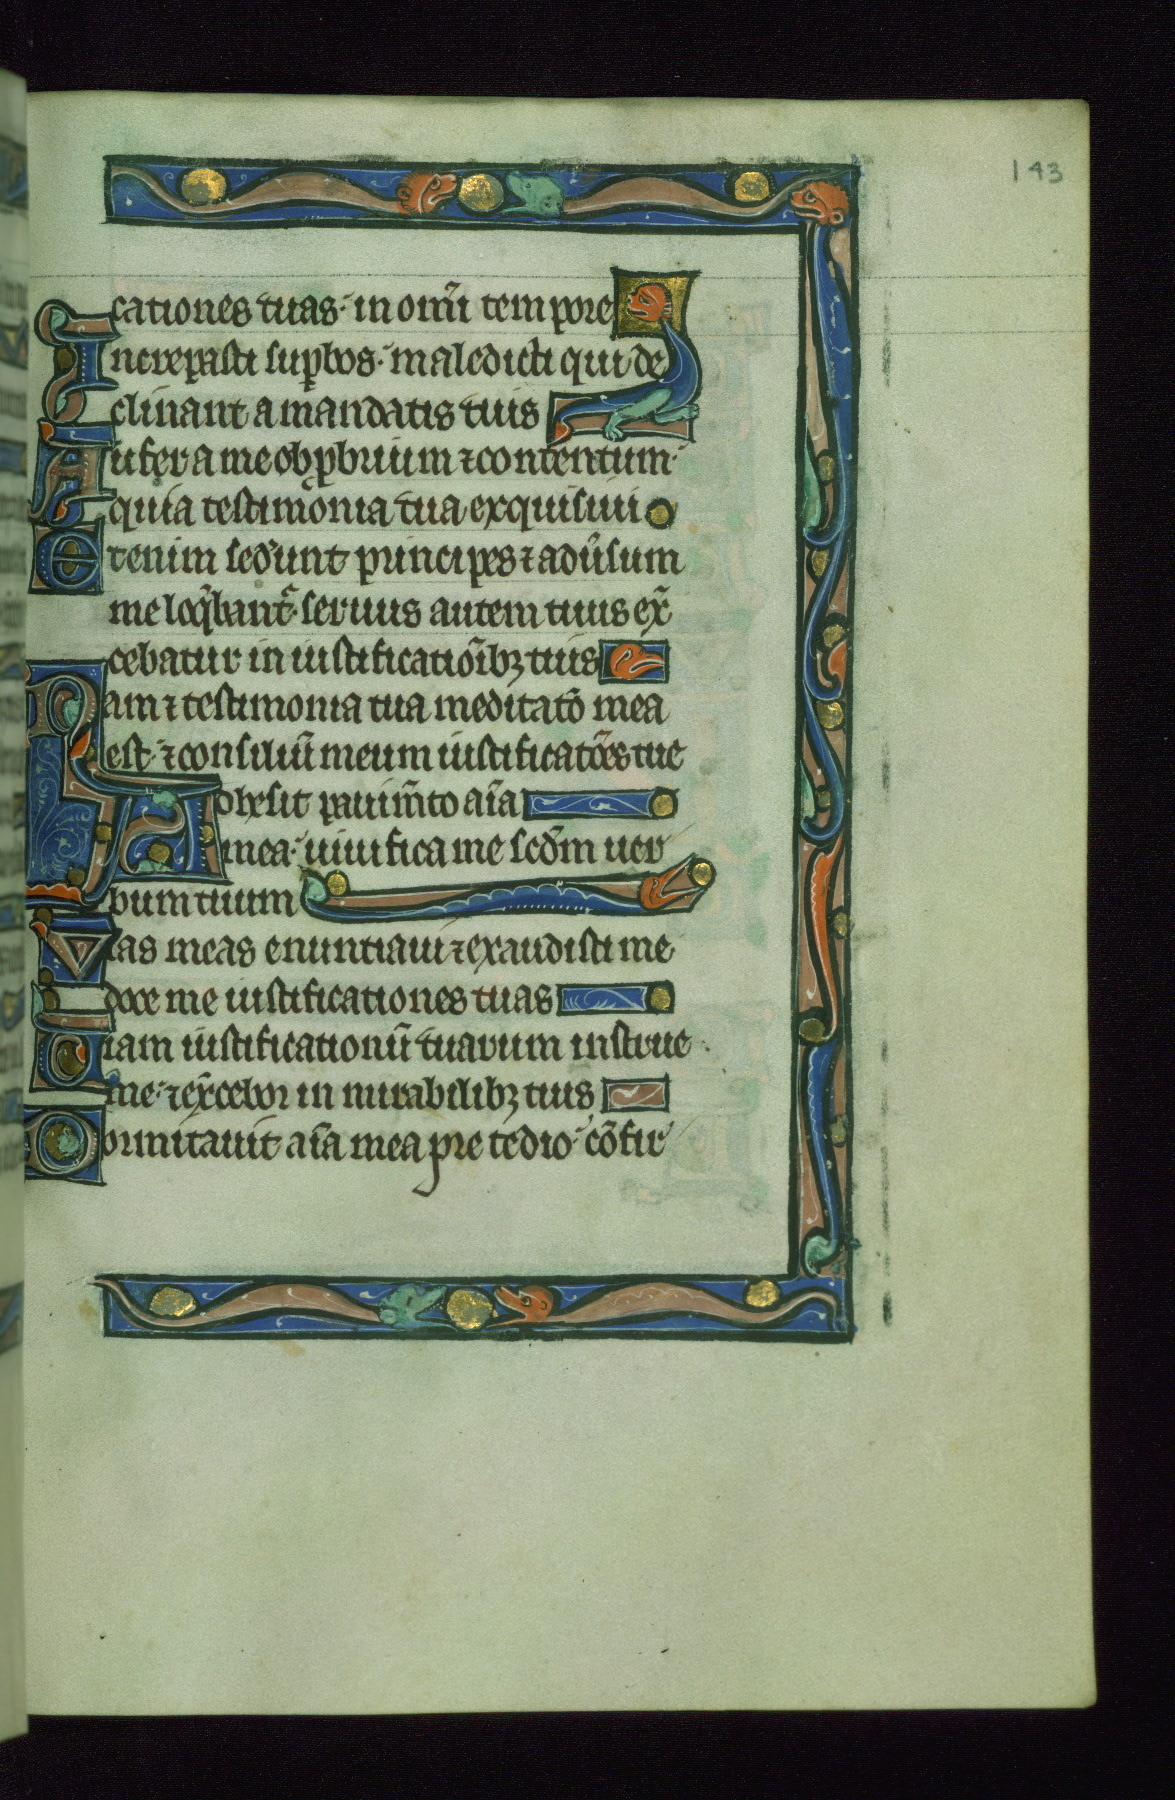 143
cationes tuas· in om̄i tempore
Increpasti suꝑbos· maledicti qui de
clinant a mandatis tuis
Aufer a me obꝓbrium ⁊ contentum·
quia testimonia tua exquisiui
Etenim sed'unt principes ⁊ adūsum
me loq̄bant᷑· seruus autem tuus ex̄
cebatur in iustificatiōibꝫ tuis
Nam ⁊ testimonia tua meditatō mea
est· ⁊ consiliū meum iustificatōes tue
Adhesit pauim̄to aīa
mea· uiuifica me scd̄m uer
bum tuum
Vias meas enuntiaui ⁊ exaudisti me
doce me iustificationes tuas
Uiam iustificationū tuarum instrue
me· ⁊ ex̄cebor in mirabilibꝫ tuis
Dormitauit aīa mea pre tedio· cōfir